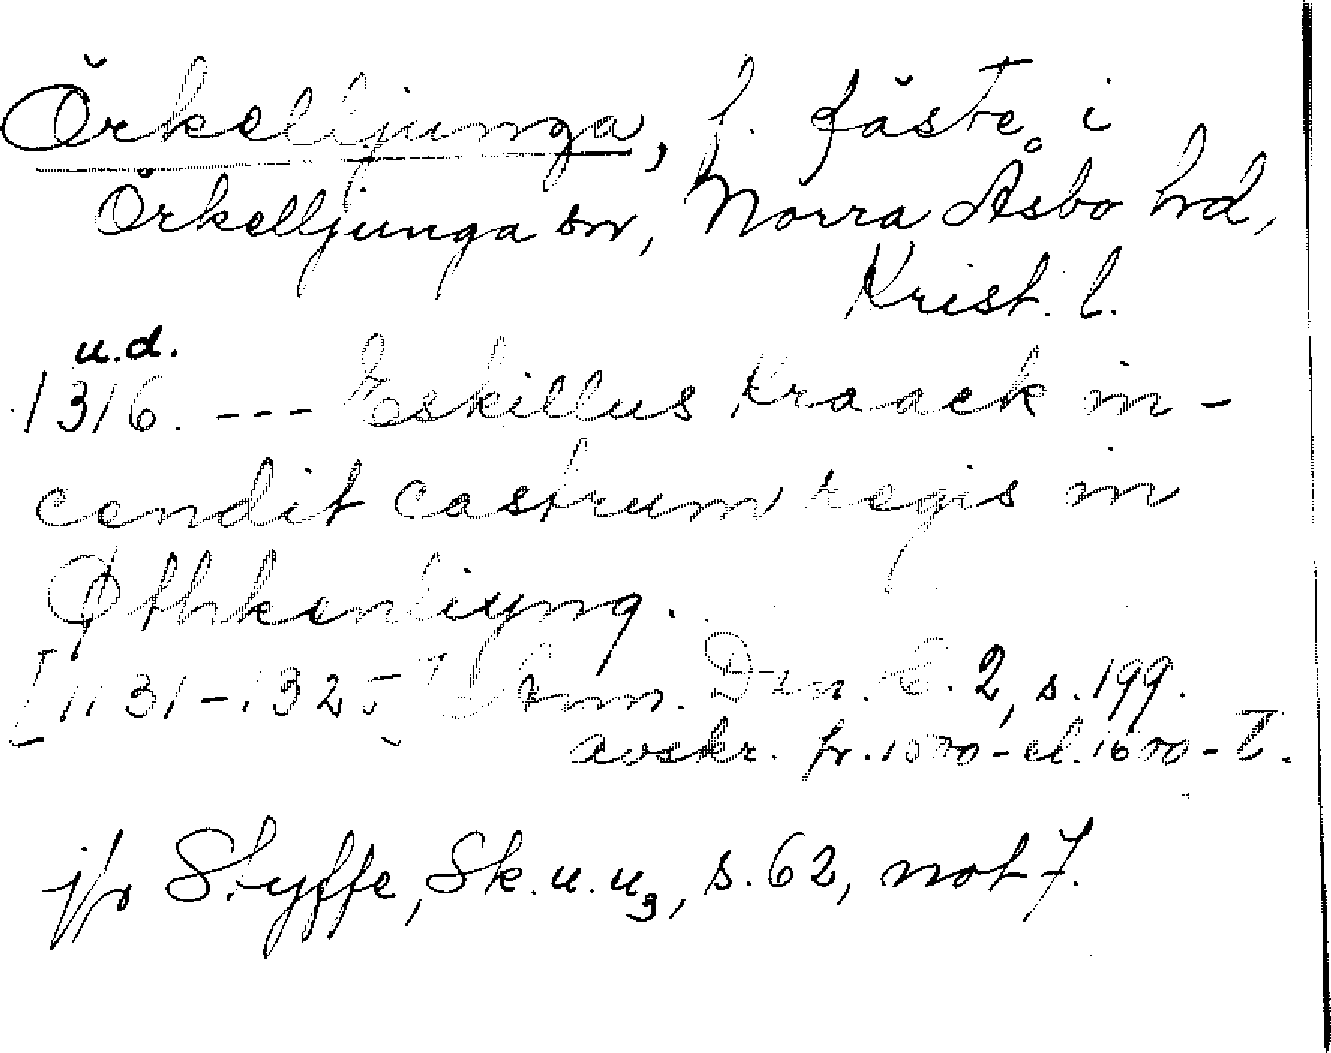 Örkelljunga, f. fäste i
Örkelljunga sn, Norra Åsbo hd,
Krist. l.
u.d.
1316. --- Eskillus Kraack in-
cendit castrum regis in
Øthkenliyng.
[1131-1325] Ann. Dan. 2, s. 199.
avskr. fr. 1500- el. 1600-t.
jfr Styffe, Sk. u. u3, s. 62, not 7.